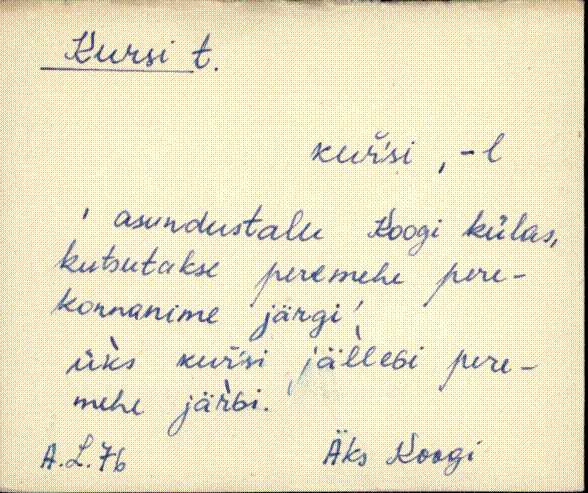 Kursi t.
kuŕsi, -l
' asundustalu Koogi külas,
kutsutakse peremehe pere-
konnanime järgi',
ük̀s kuŕsi jäl̀leGi pere-
mehe jär̀Gi.
A.L.76 Äks Koogi